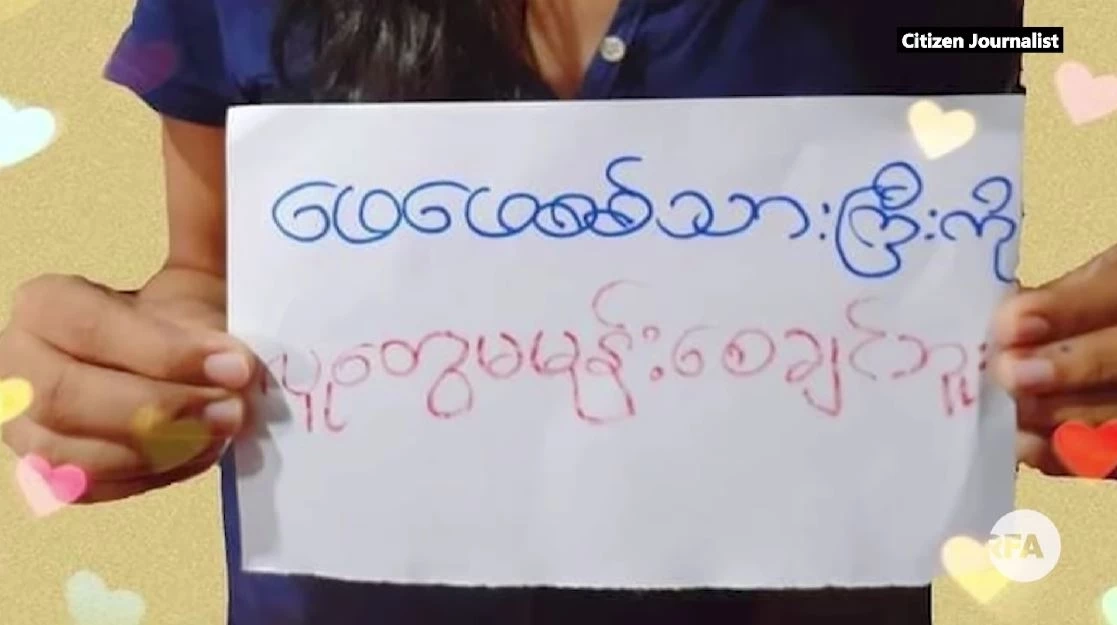 Citizen Journalist
ဖေဖေစစ်သားကြီးကို
လူတွေမမုန်းစေချင်ဘူး
RFA